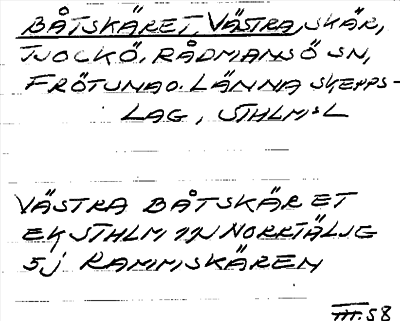 BÅTSKÄRET, VÄSTRA, SKÄR,
TJOCKÖ, RÅDMANSÖ SN,
FRÖTUNA O. LÄNNA SKEPPS-
LAG, STHLMSL
VÄSTRA BÅTSKÄRET
EK STHLM 1N NORRTÄLJE
5j RAMMSKÄREN
III.58